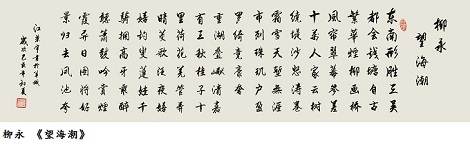 柳永
望海潮
东南形胜三吴
都会钱塘自古
繁华烟柳画桥
风帘翠幕参差
十万人家云树
绕堤沙怒涛卷
霜雪天堑无涯
市列珠玑户盈
罗绮竞豪奢
重湖叠巘清嘉
有三秋桂子十
里荷花羌管弄
晴菱歌泛夜嬉
嬉钓叟莲娃千
骑拥高牙乘醉
听箫鼓吟赏烟
霞异日图将好
景归去凤池夸
柳永 《望海潮》